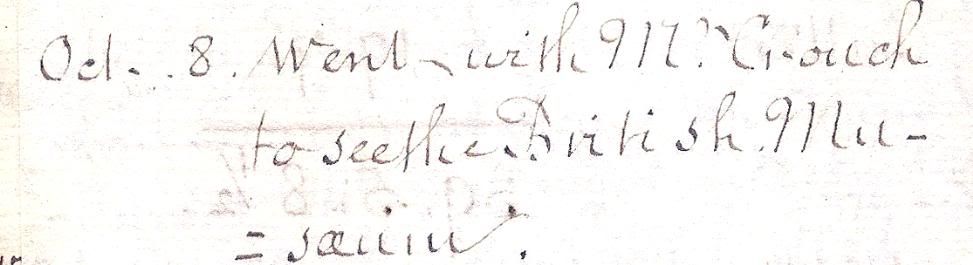 Oct. 8. Went with Mr. Crouch
to see the British Mu-
=sæum.